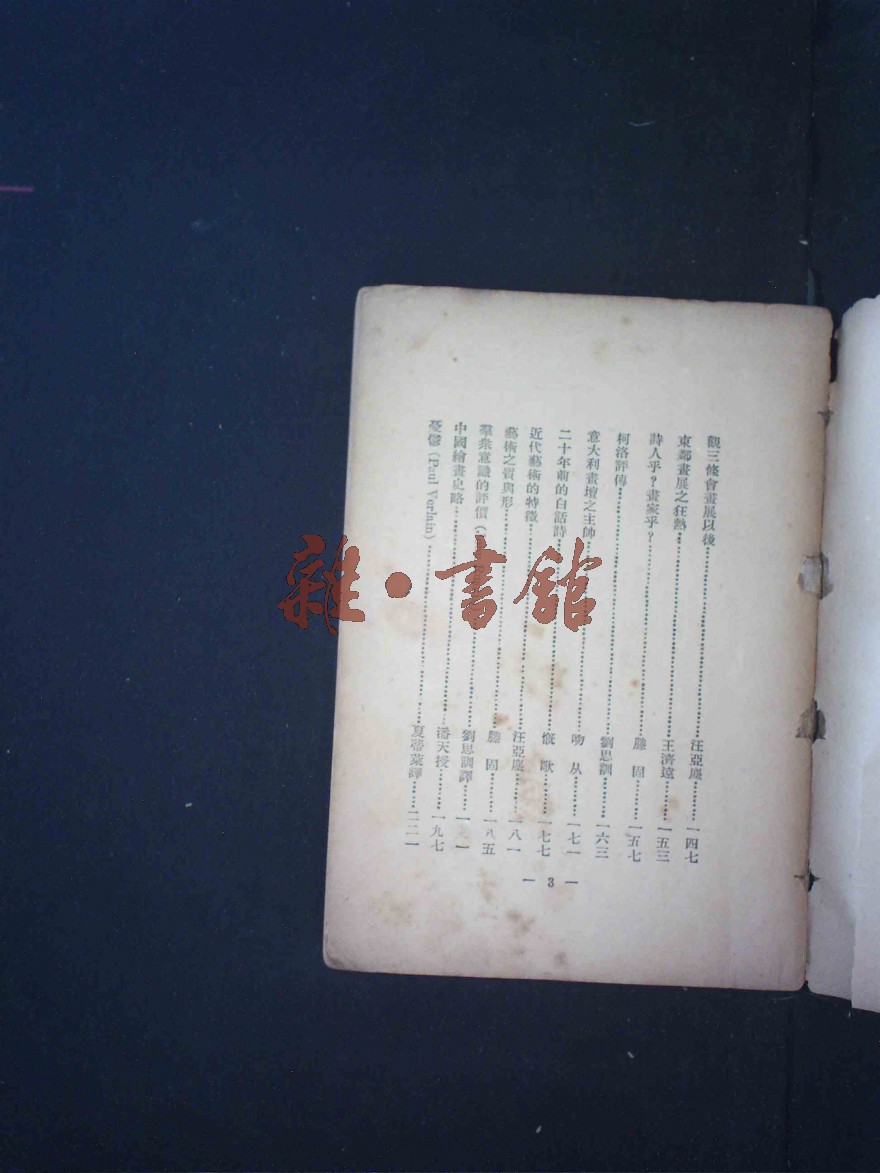 觀三修會畫展以後……汪亞塵……一四七
東鄰畫展之狂熱……王濟遠……一五三
詩人乎?畫家乎?……滕 固……一五七
柯洛評傳……劉思訓……一六三
意大利畫壇之主帥……吻 从……一七一
二十年前的白話詩……慨 歌……一七七
近代藝術的特徵……汪亞塵……一八一
藝術之質與形……滕 固……一八五
羣衆意識的評價(……劉思訓譯……一 一
中國繪畫史略……潘天授……一九七
憂鬱(Paul Verlain)……夏蒂蒙譯……二二一
— 3 —
雜·書館